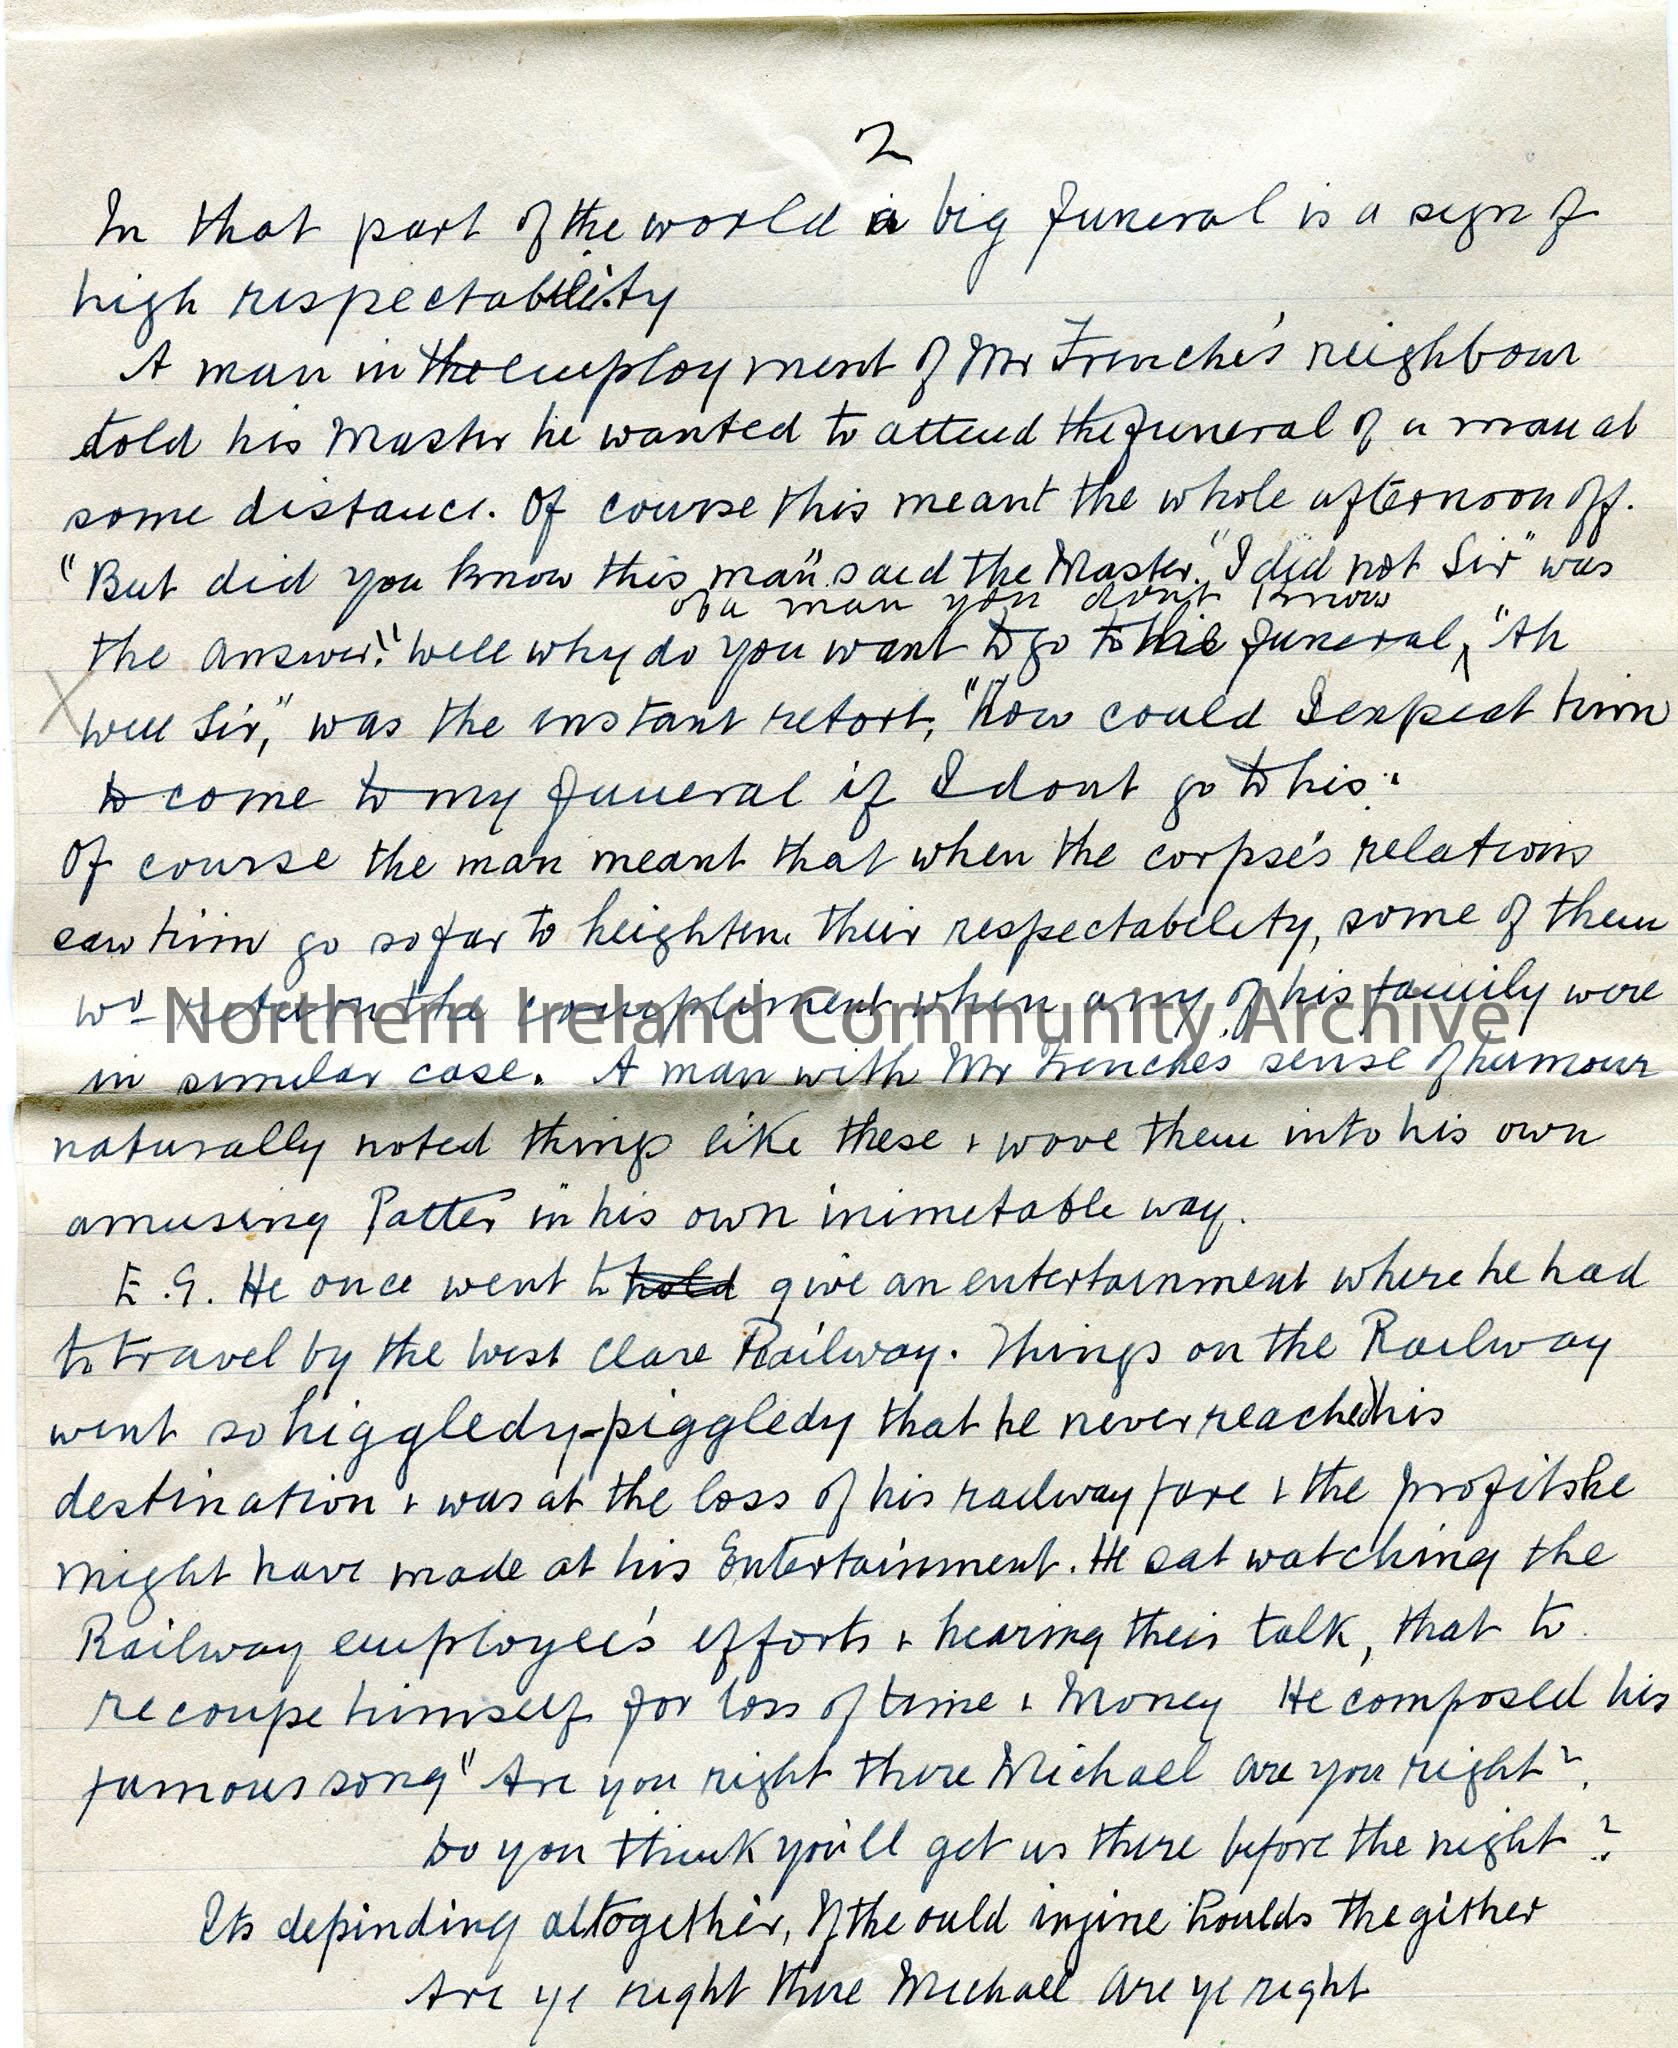 2
In that part of the world a big funeral is a sign of
high respectability
A man in the employment of Mr Frenche's neighbour
told his Master he wanted to attend the funeral of a man at
some distance. Of course this meant the whole afternoon off.
"But did you know this man" said the Master. "I did not Sir" was
of a man you don't know
the answer." "Well why do you want to go to the funeral, "Ah
well Sir," was the instant retort, "how could I expect him
to come to my funeral if I dont go to his."
Of course the man meant that when the corpse's relations
saw him go so far to heighten their respectability, some of them
wd return the compliment when any of his family were
in similar case. A man with Mr Frenches' sense of humour
naturally noted things like these & wove them into his own
amusing "Patter" in his own inimetable way.
E.G. He once went to hold give an entertainment where he had
to travel by the West Clare Railway. Things on the Railway
went so higgledy-piggledy that he never reached his
destination & was at the loss of his railway fare & the profits he
might have made at his Entertainment. He sat watching the
Railway employee's efforts & hearing their talk, that to
recoupe himself for loss of time & Money He composed his
famous song "Are you right there Michael are you right?
Do you think you'll get us there before the night?
Its depinding altogether, If the ould injine houlds thegither
Are ye right there Michael are ye right
Northern Ireland Community Archive